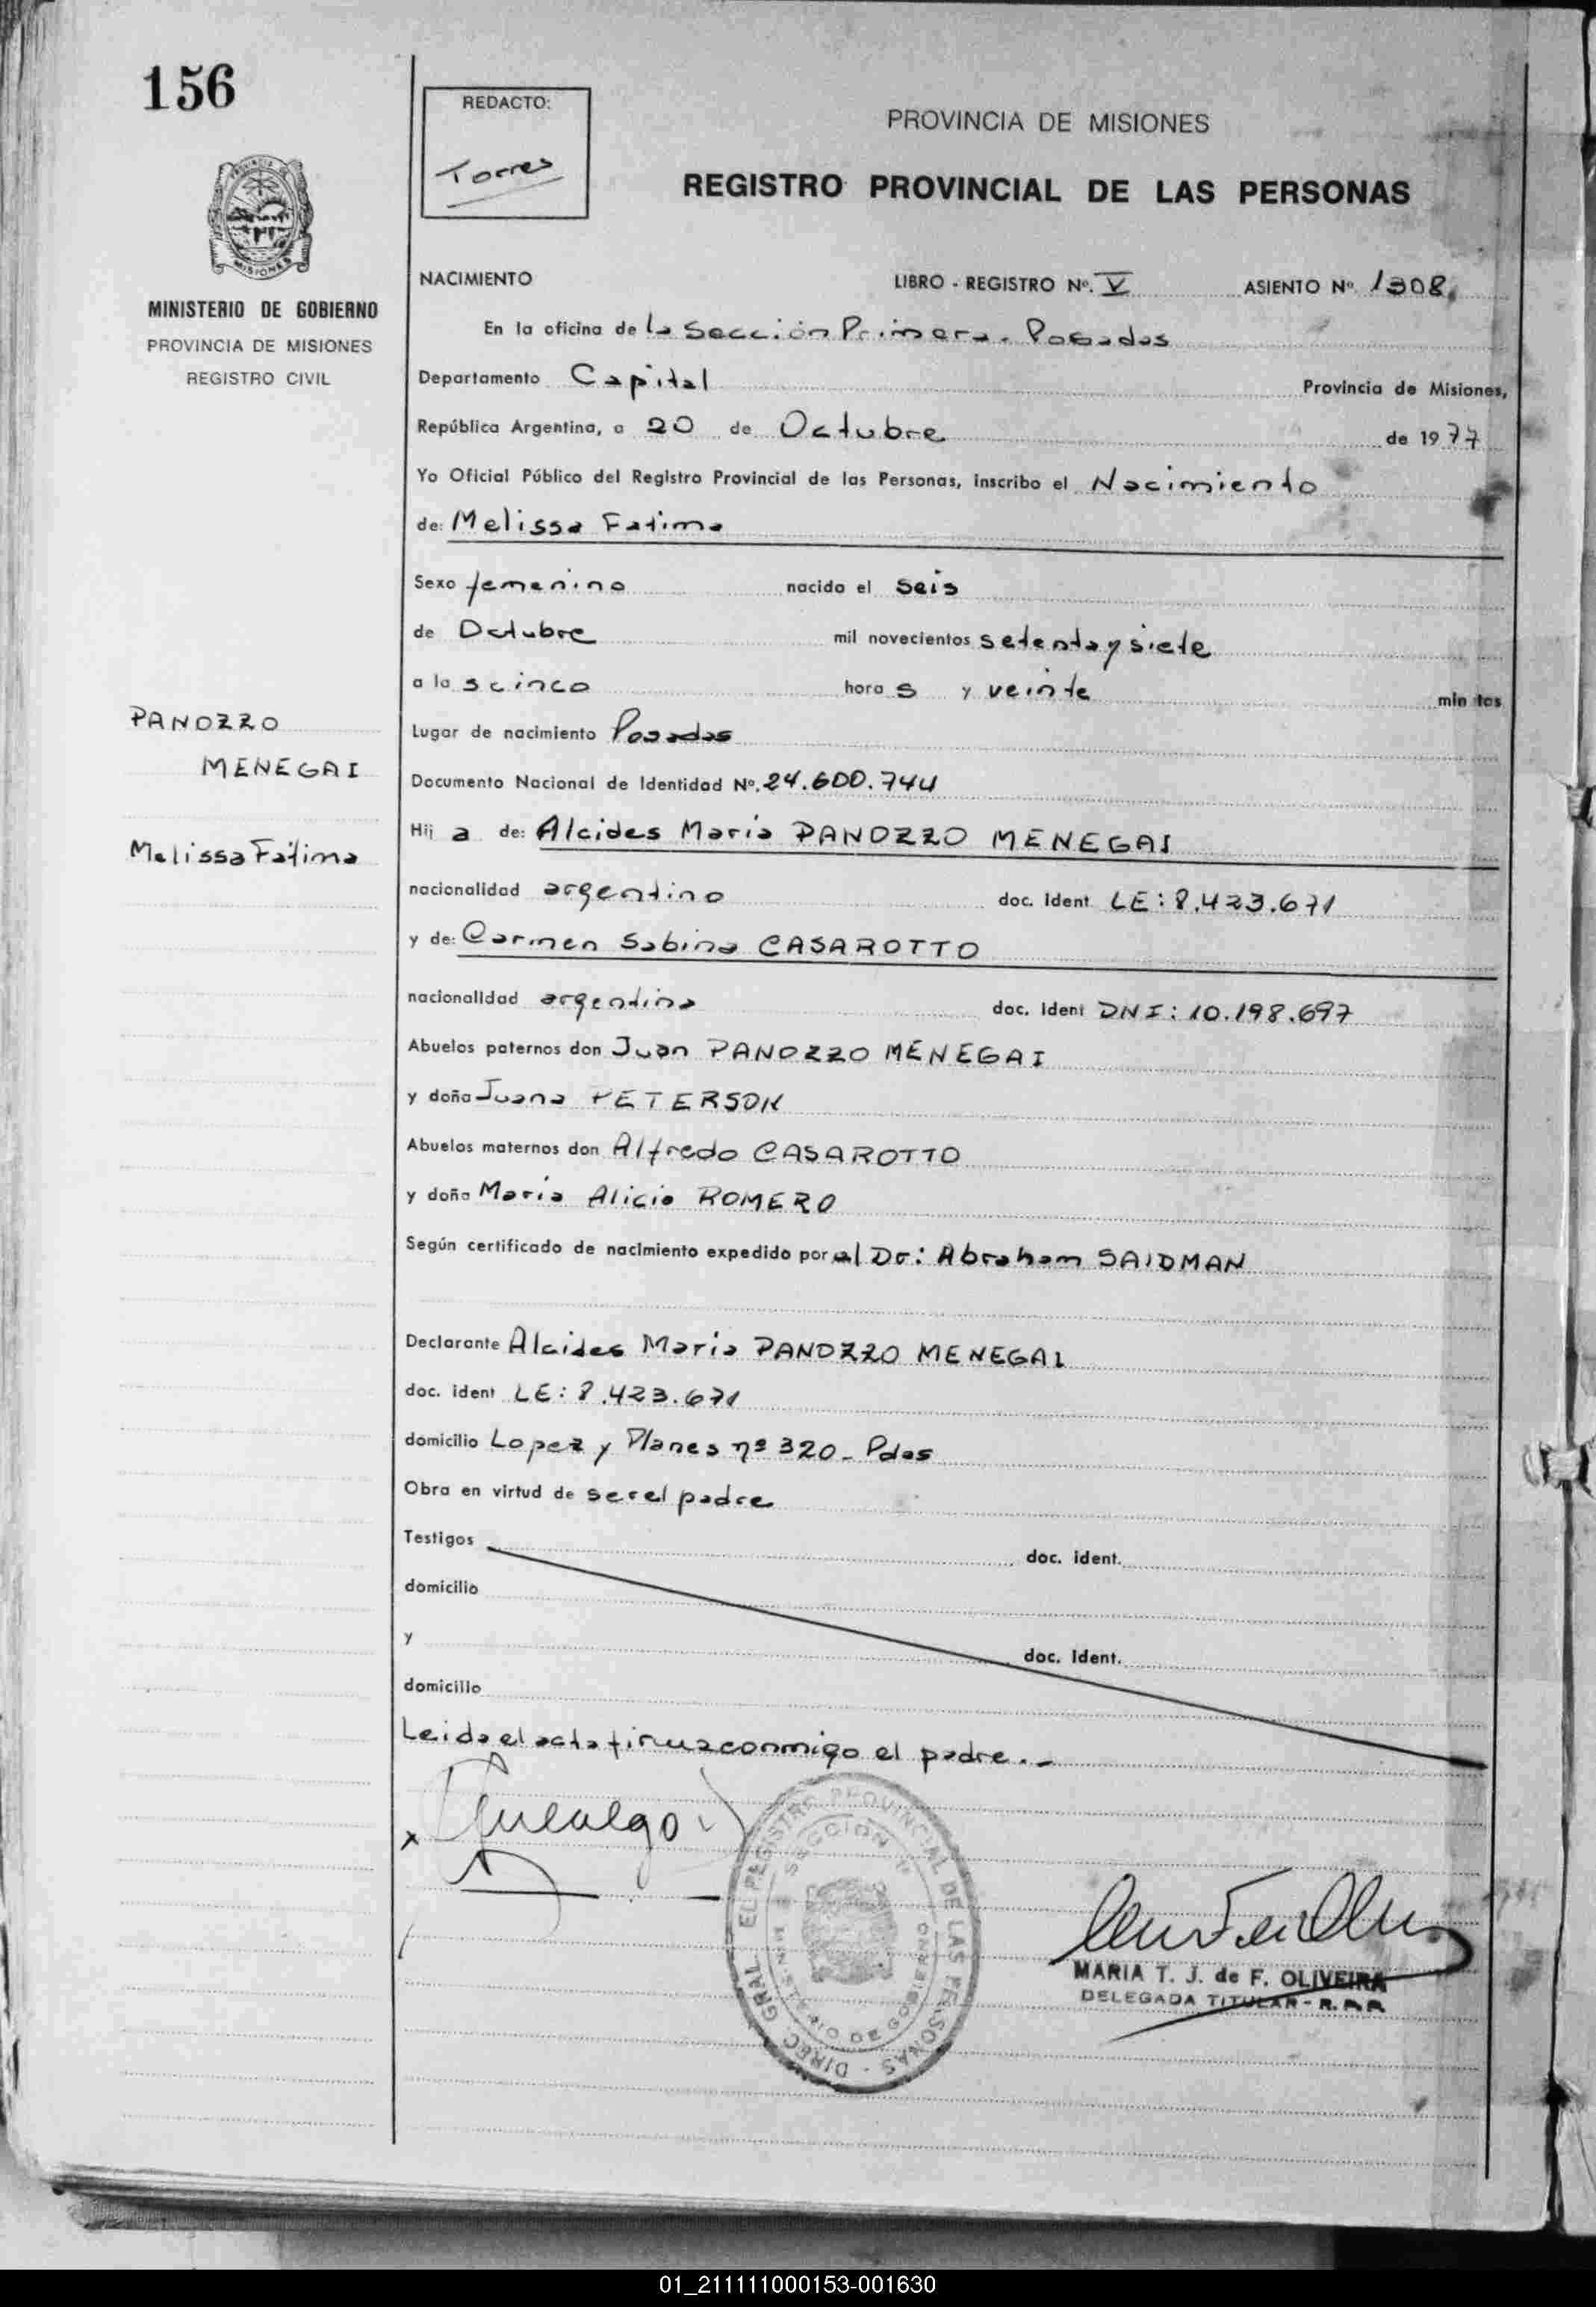 156
REDACTO:
Torres
PROVINCIA DE MISIONES
REGISTRO PROVINCIAL DE LAS PERSONAS
MISIONES
MINISTERIO DE GOBIERNO
PROVINCIA DE MISIONES
REGISTRO CIVIL
NACIMIENTO LIBRO - REGISTRO Nº. V ASIENTO Nº 1308
En la oficina de la Sección Primera. Posadas
Departamento Capital Provincia de Misiones,
República Argentina, a 20 de Octubre de 1977
Yo Oficial Público del Registro Provincial de las Personas, inscribo el Nacimiento
de: Melissa Fatima
Sexo femenino nacido el seis
de Octubre mil novecientos setenta y siete
a las cinco horas y veinte minutos
Lugar de nacimiento Posadas
Documento Nacional de Identidad Nº. 24.600.744
Hija de: Alcides Maria PANOZZO MENEGAI
nacionalidad argentino doc. Ident LE: 8.423.671
y de: Carmen Sabina CASAROTTO
nacionalidad argentina doc. Ident DNI: 10.198.697
Abuelos paternos don Juan PANOZZO MENEGAI
y doña Juana PETERSON
Abuelos maternos don Alfredo CASAROTTO
y doña Maria Alicia ROMERO
Según certificado de nacimiento expedido por el Dr: Abraham SAIDMAN
Declarante Alcides Maria PANOZZO MENEGAI
doc. ident LE: 8.423.671
domicilio Lopez y Planes nº 320 - Pdas
Obra en virtud de ser el padre
Testigos doc. ident.
domicilio
y doc. Ident.
domicilio
Leida el acta firma conmigo el padre. -
PANOZZO
MENEGAI
Melissa Fatima
x
DIREC. GRAL. EL REGISTRO PROVINCIAL DE LAS PERSONAS -
SECCION
MINISTERIO DE GOBIERNO
MARIA T. J. de F. OLIVEIRA
DELEGADA TITULAR - R.P.P.
01_211111000153-001630